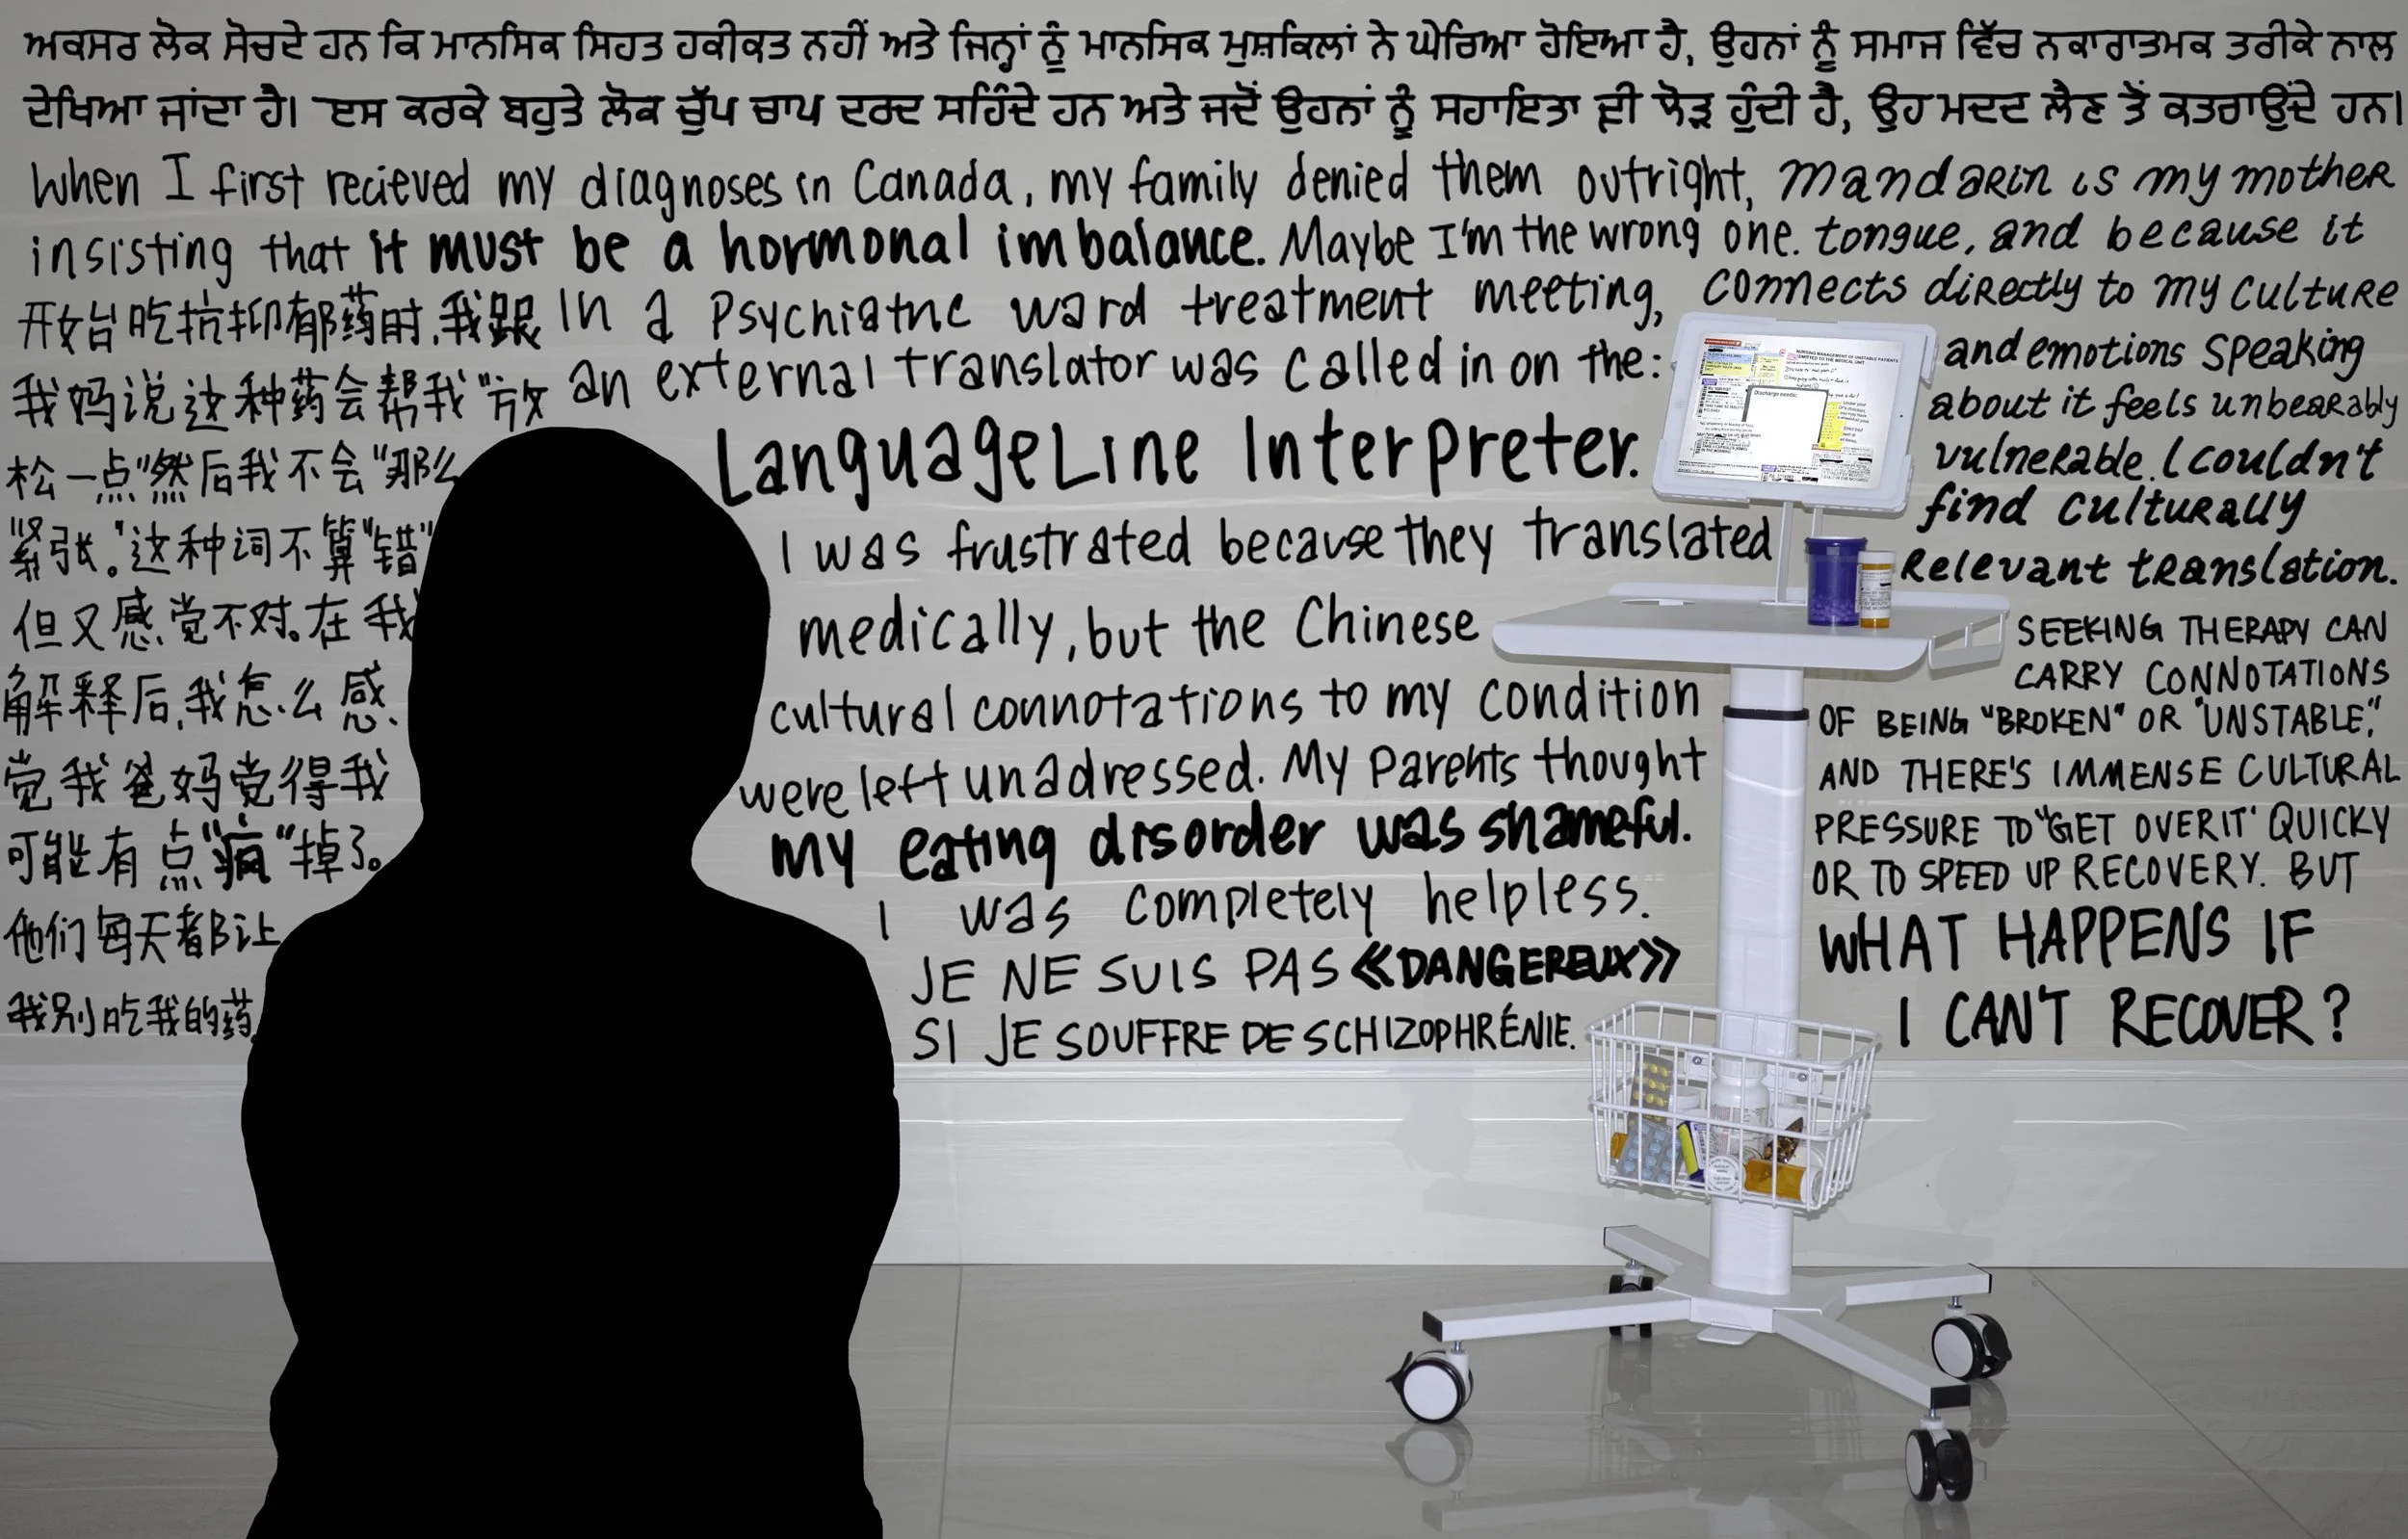 ਅਕਸਰ ਲੋਕ ਸੋਚਦੇ ਹਨ ਕਿ ਮਾਨਸਿਕ ਸਿਹਤ ਹਕੀਕਤ ਨਹੀਂ ਅਤੇ ਜਿਨ੍ਹਾਂ ਨੂੰ ਮਾਨਸਿਕ ਮੁਸ਼ਕਿਲਾਂ ਨੇ ਘੇਰਿਆ ਹੋਇਆ ਹੈ, ਉਹਨਾਂ ਨੂੰ ਸਮਾਜ ਵਿੱਚ ਨਕਾਰਾਤਮਕ ਤਰੀਕੇ ਨਾਲ
ਦੇਖਿਆ ਜਾਂਦਾ ਹੈ। ਇਸ ਕਰਕੇ ਬਹੁਤੇ ਲੋਕ ਚੁੱਪ ਚਾਪ ਦਰਦ ਸਹਿੰਦੇ ਹਨ ਅਤੇ ਜਦੋਂ ਉਹਨਾਂ ਨੂੰ ਸਹਾਇਤਾ ਦੀ ਲੋੜ ਹੁੰਦੀ ਹੈ, ਉਹ ਮਦਦ ਲੈਣ ਤੋਂ ਕਤਰਾਉਂਦੇ ਹਨ।
When I first recieved my diagnoses in Canada, my family denied them outright,
insisting that it must be a hormonal imbalance. Maybe I'm the wrong one.
开始吃抗抑郁药时,我跟
我妈说这种药会帮我"放
松一点"然后我不会"那么
紧张。"这种词不算"错"
但又感觉不对。在我
解释后,我怎么感
觉我爸妈觉得我
可能有点"疯"掉了。
他们每天都让
我别吃我的药
In a Psychiatric ward treatment meeting,
an external translator was called in on the:
LanguageLine Interpreter.
I was frustrated because they translated
medically, but the Chinese
cultural connotations to my condition
were left unadressed. My Parents thought
my eating disorder was shameful.
I was completely helpless.
JE NE SUIS PAS «DANGEREUX»
SI JE SOUFFRE DE SCHIZOPHRÉNIE.
Mandarin is my mother
tongue, and because it
connects directly to my culture
and emotions speaking
about it feels unbearably
vulnerable. I couldn't
find culturally
relevant translation.
SEEKING THERAPY CAN
CARRY CONNOTATIONS
OF BEING "BROKEN" OR "UNSTABLE,"
AND THERE'S IMMENSE CULTURAL
PRESSURE TO "GET OVER IT" QUICKY
OR TO SPEED UP RECOVERY. BUT
WHAT HAPPENS IF
I CAN'T RECOVER?
NURSING MANAGEMENT OF UNSTABLE PATIENTS
ADMITTED TO THE MEDICAL UNIT
Discharge needs: